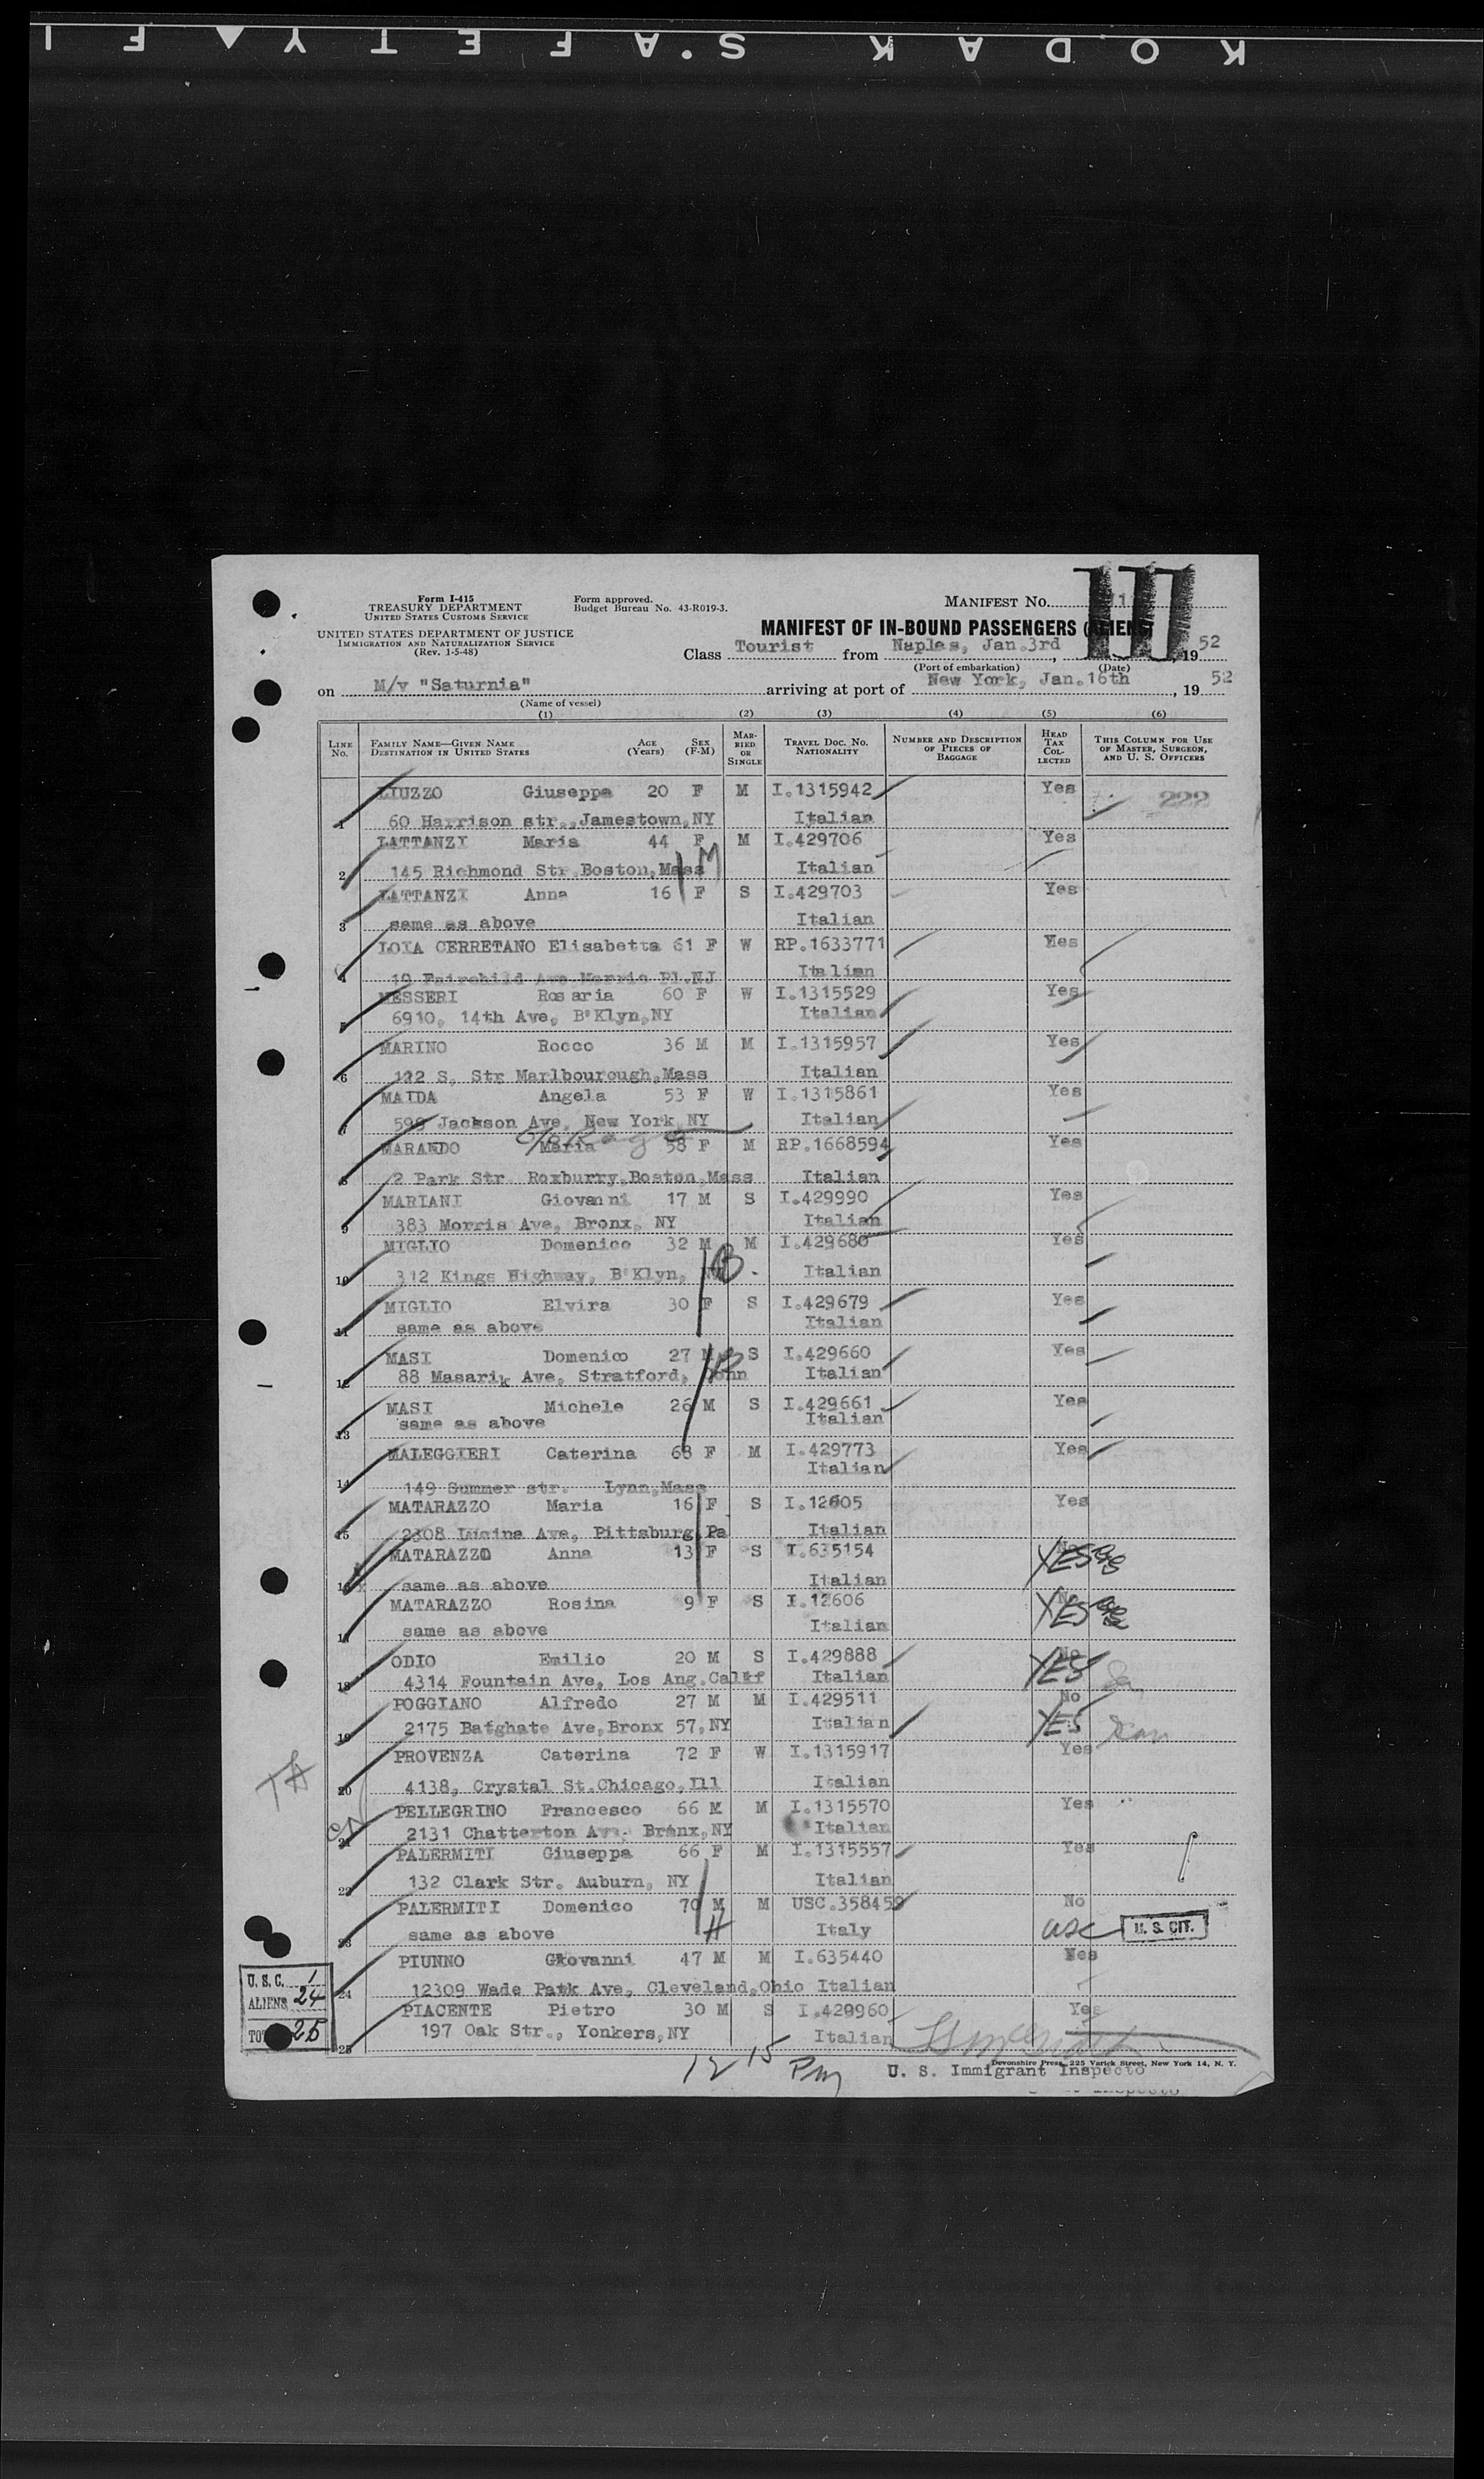 KODAK SAFETY FI
Form I-415
TREASURY DEPARTMENT
UNITED STATES CUSTOMS SERVICE
UNITED STATES DEPARTMENT OF JUSTICE
IMMIGRATION AND NATURALIZATION SERVICE
(Rev. 1-5-48)
Form approved.
Budget Bureau No. 43-R019-3.
MANIFEST NO.
MANIFEST OF IN-BOUND PASSENGERS (ALIENS)
Class Tourist from Naples, Jan.3rd, 1952
(Port of embarkation) (Date)
on M/v "Saturnia" arriving at port of New York, Jan.16th, 1952
(Name of vessel)
(1) (2) (3) (4) (5) (6)
LINE NO. FAMILY NAME—GIVEN NAME DESTINATION IN UNITED STATES AGE (Years) SEX (F-M) MARRIED OR SINGLE TRAVEL DOC. NO. NATIONALITY NUMBER AND DESCRIPTION OF PIECES OF BAGGAGE HEAD TAX COLLECTED THIS COLUMN FOR USE OF MASTER, SURGEON, AND U. S. OFFICERS
LIUZZO Giuseppa 20 F M I.1315942 Yes 222
1 60 Harrison str.,Jamestown,NY Italian
LATTANZI Maria 44 F M I.429706 Yes
2 145 Richmond Str.Boston,Mass Italian
LATTANZI Anna 16 F S I.429703 Yes
3 same as above Italian
LOIA CERRETANO Elisabetta 61 F W RP.1633771 Yes
4 19 Fairchild Ave,Morris Pl.NJ Italian
MESSERI Rosaria 60 F W I.1315529 Yes
5 6910, 14th Ave, B'Klyn,NY Italian
MARINO Rocco 36 M M I.1315957 Yes
6 122 S, Str Marlbourough,Mass Italian
MAIDA Angela 53 F W I.1315861 Yes
7 Jackson Ave, New York, NY Italian
c/o
MARANDO Maria 58 F M RP.1668594 Yes
8 2 Park Str. Roxburry,Boston,Mass Italian
MARIANI Giovanni 17 M S I.429990 Yes
9 383 Morris Ave, Bronx, NY Italian
MIGLIO Domenico 32 M M I.429680 Yes
10 312 Kings Highway, B'Klyn, Italian
MIGLIO Elvira 30 F S I.429679 Yes
11 same as above Italian
MASI Domenico 27 M S I.429660 Yes
12 88 Masarik Ave, Stratford, Italian
MASI Michele 26 M S I.429661 Yes
13 same as above Italian
MALEGGIERI Caterina 68 F M I.429773 Yes
Italian
14 149 Summer str. Lynn,Mass
MATARAZZO Maria 16 F S I.12605 Yes
15 2308 Ave, Pittsburg,Pa Italian
MATARAZZO Anna 13 F S I.635154 No YES
16 same as above Italian
MATARAZZO Rosina 9 F S I.12606 No YES
17 same as above Italian
ODIO Emilio 20 M S I.429888 No YES
18 4314 Fountain Ave, Los Ang.Calif Italian
POGGIANO Alfredo 27 M M I.429511 No
19 2175 Bathgate Ave,Bronx 57,NY Italian YES
PROVENZA Caterina 72 F W I.1315917 Yes
20 4138, Crystal St.Chicago,Ill Italian
PELLEGRINO Francesco 66 M M I.1315570 Yes
21 2131 Chatterton Ave. Bronx,NY Italian
PALERMITI Giuseppa 66 F M I.1315557 Yes
22 132 Clark Str. Auburn, NY Italian
PALERMITI Domenico 70 M M USC.358459 No
23 same as above Italy USC U. S. CIT.
PIUNNO Giovanni 47 M M I.635440 Yes
24 12309 Wade Park Ave, Cleveland,Ohio Italian
PIACENTE Pietro 30 M S I.429960 Yes
25 197 Oak Str., Yonkers,NY Italian
U.S.C. 1
ALIENS 24
TOT 25
12 15 Pm
Devonshire Press, 225 Varick Street, New York 14, N. Y.
U. S. Immigrant Inspecto